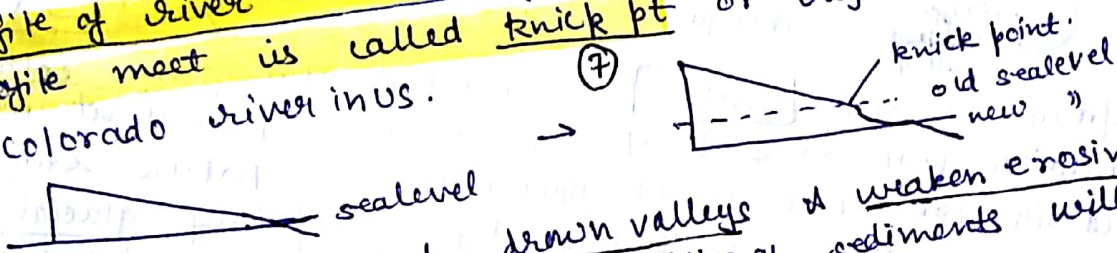 of river
meet is called knick pt
7
colorado river in US.
→
knick point.
old sealevel
new "
sealevel
drown valleys & weaken erosiv
sediments will